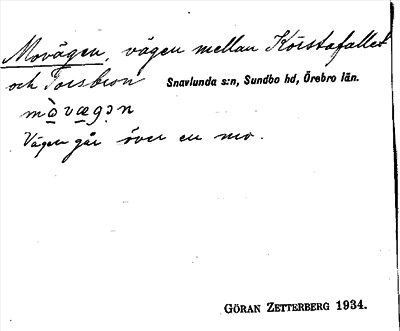 Movägen, vägen mellan Körstafallet
och Torsbron Snavlunda s:n, Sundbo hd, Örebro län.
mò̱væ̱gən
Vägen går över en mo.
GÖRAN ZETTERBERG 1934.